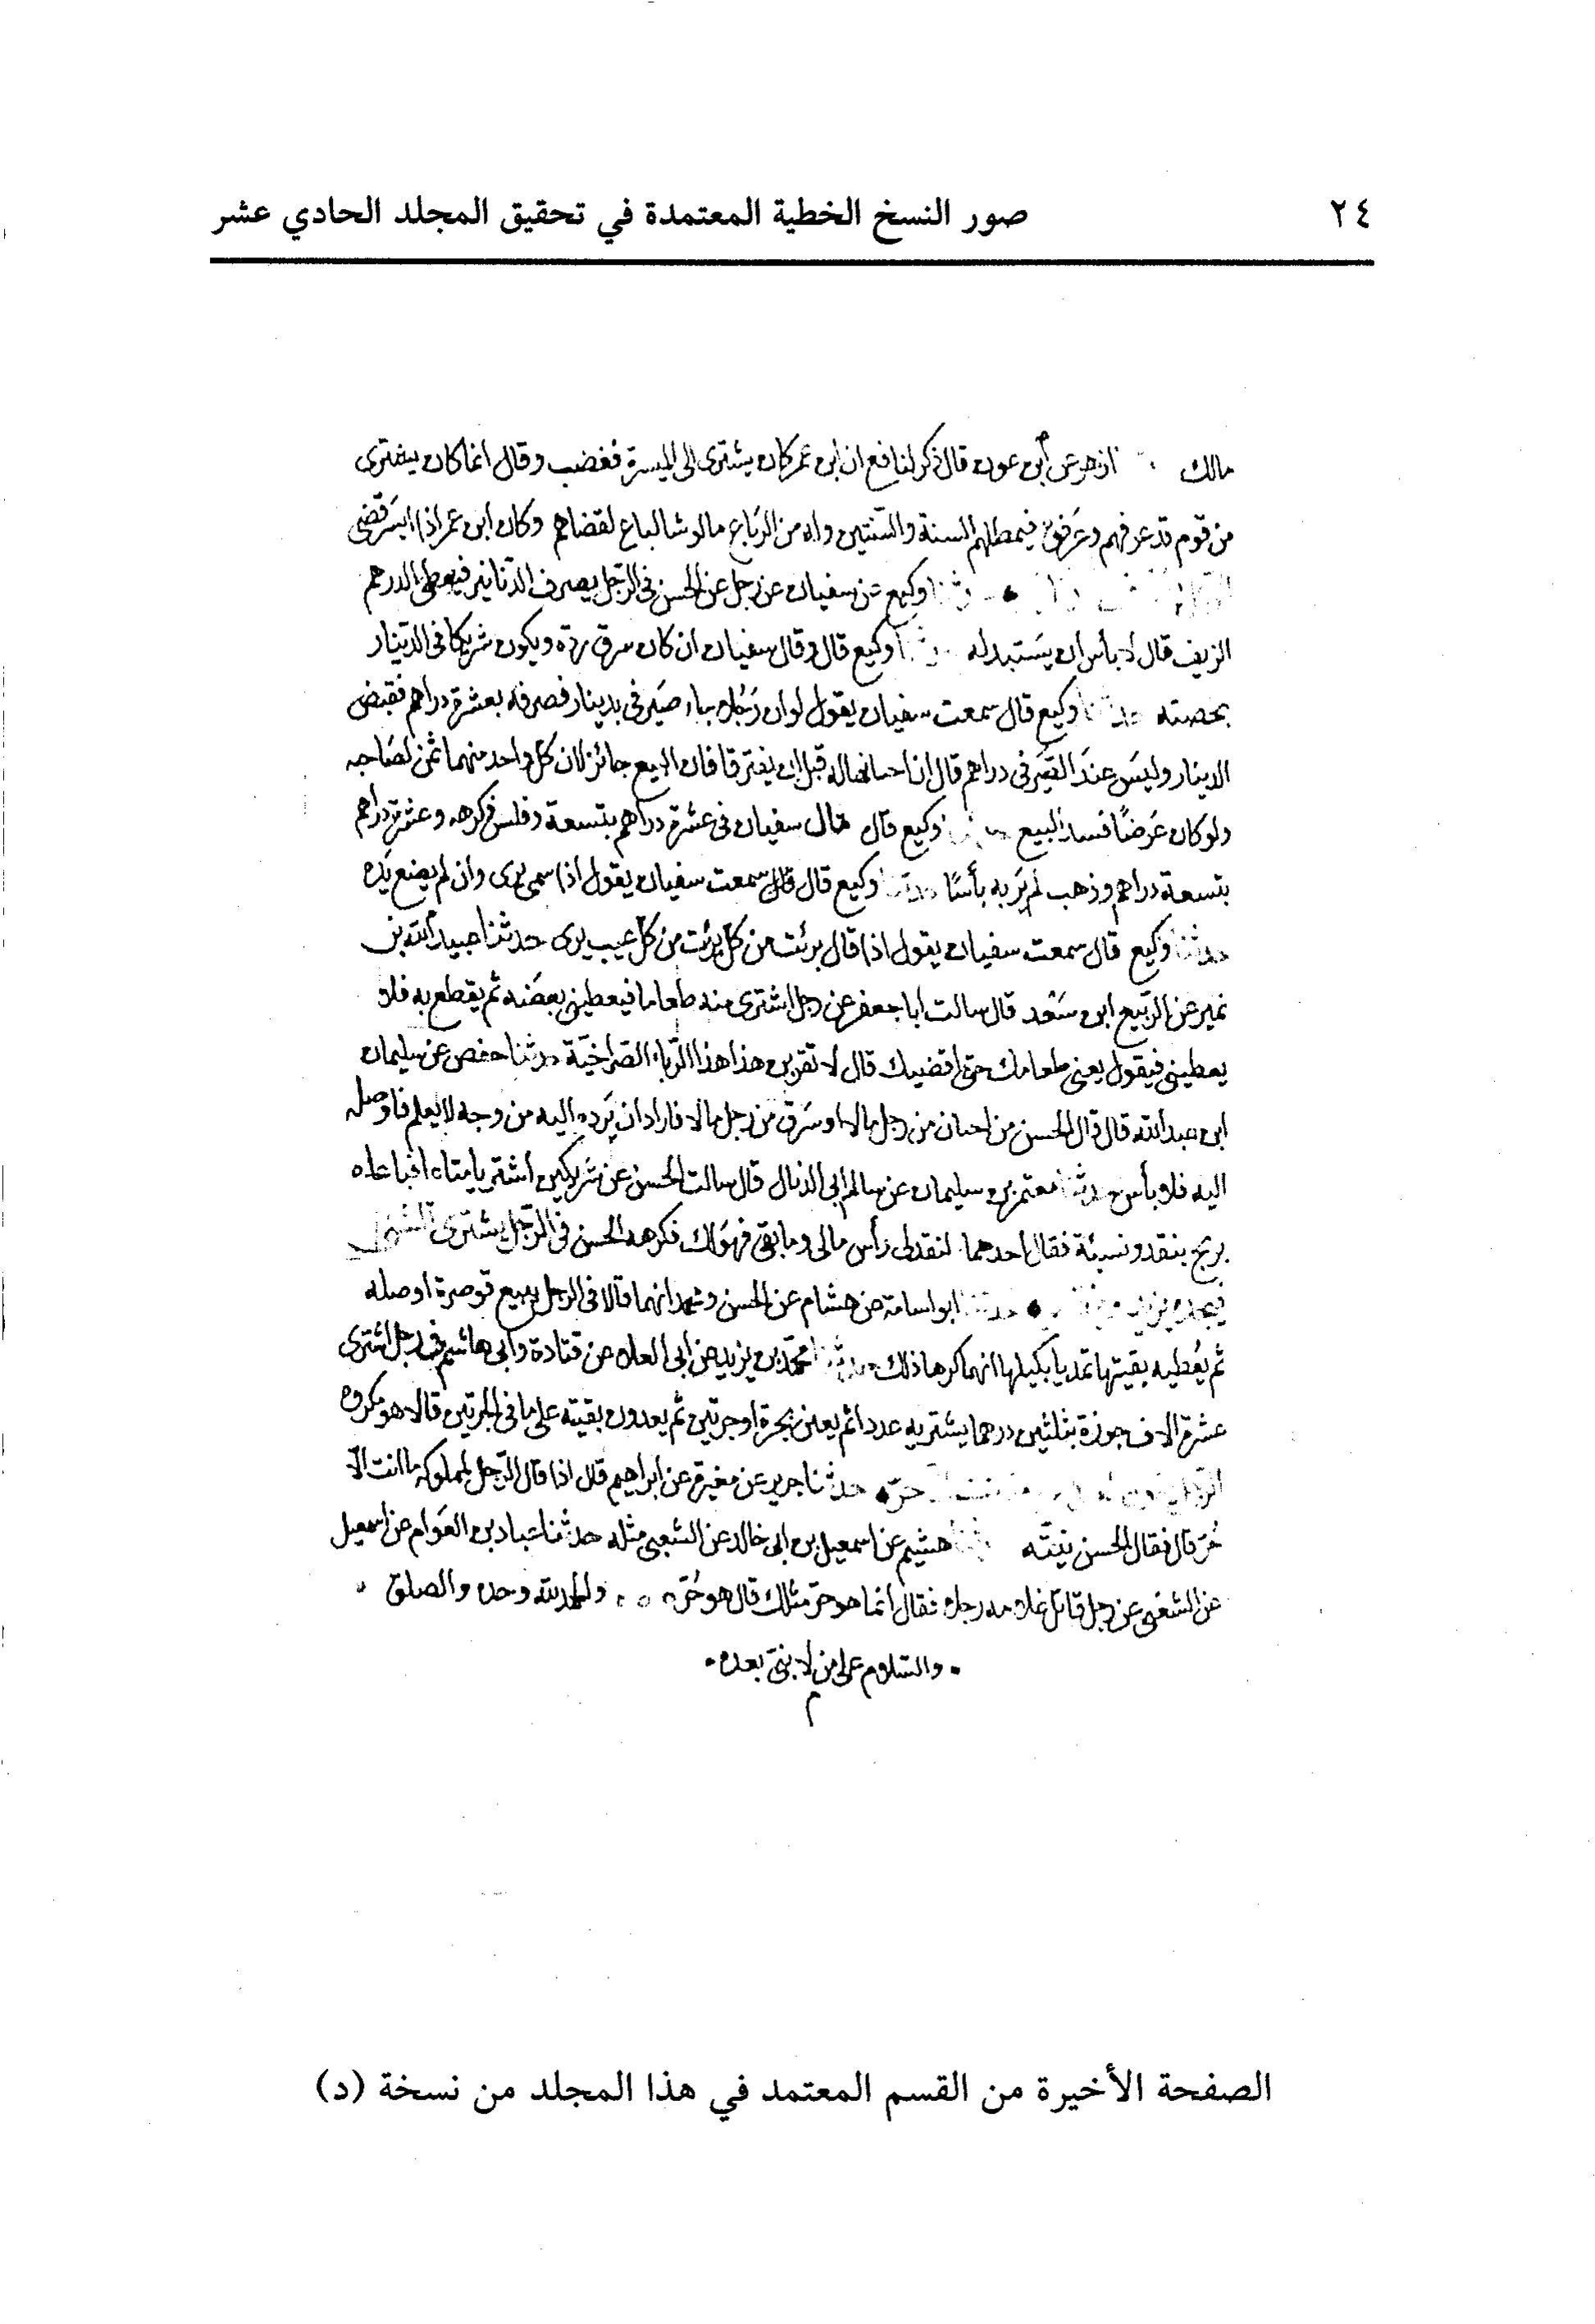 ٢٤ صور النسخ الخطية المعتمدة في تحقيق المجلد الحادي عشر
مالك ازهر عن ابن عون قال ذكر لنافع ان ابن عمر كان يشترى الى الميسرة فغضب وقال انما كان يشترى
من قوم قد عرفهم وعرفوه فيمطلهم السنة والسنتين وله من الرباع مالو شا لباع لقضاهم وكان ابن عمر اذا ايسر قضى
وكيع عن سفيان عن رجل عن الحسن فى الرجل يصرف الدنانير فيعطى الدرهم
الزيف قال لا بأس ان يستبدله وكيع قال وقال سفيان ان كان سرق رده ويكون شريكا فى الدينار
بحصته حدثنا وكيع قال سمعت سفيان يقول لو ان رجلا جاء صيرفى بدينار فصرفه بعشرة دراهم فقبض
الدينار وليس عند الصيرفى دراهم قال ان احتالها له قبل ان يفترقا فان البيع جائز لان كل واحد منهما ثمن لصاحبه
ولو كان عرضا فسد البيع وكيع قال قال سفيان فى عشرة دراهم بتسعة وفلس فكرهه وعشرة دراهم
بتسعة دراهم وذهب لم ير به بأسا حدثنا وكيع قال قال سمعت سفيان يقول اذا سمى برى وان لم يضع يده
حدثنا وكيع قال سمعت سفيان يقول اذا قال برئت من كل برئت من كل عيب برى حدثنا عبيد الله بن
نمير عن الربيع ابن سعد قال سالت ابا جعفر عن رجل اشترى منه طعاما فيعطينى بعضه ثم يقطع به فلا
يعطينى فيقول بعنى طعامك حتى اقضيك قال لا تقربن هذا هذا الربا الصراخية حدثنا حفص عن سليمان
ابن عبدالله قال قال الحسن من اختان من رجل مالا او سرق من رجل مالا فاراد ان يرده اليه من وجه لا يعلم فاوصله
اليه فلا بأس حدثنا معتمر بن سليمان عن سالم ابى الذيال قال سالت الحسن عن شريكين اشتريا متاعا فباعاه
بربح بنقد ونسيئة فقال احدهما انقد لى رأس مالى وما بقى فهو لك فكرهه الحسن فى الرجل يشترى
حدثنا ابو اسامة عن هشام عن الحسن ومحمد انهما قالا فى الرجل يبيع قوصرة او صله
ثم يعطيه بقيتها بكيلها انهما كرها ذلك حدثنا محمد بن يزيد عن ابى العلاء عن قتادة وابى هاشم فى رجل اشترى
عشرة الاف جوزة بثلثين درهما يشتريه عددا ثم يعين بجرة او جرتين ثم يعدون بقيته على ما فى الجرتين قالا هو مكروه
حر حدثنا جرير عن مغيرة عن ابراهيم قال اذا قال الرجل لمملوكه ما انت الا
حر قال فقال الحسن نيته حدثنا هشيم عن اسمعيل بن ابى خالد عن الشعبى مثله حدثنا عباد بن العوام عن اسمعيل
عن الشعبى عن رجل قاتل غلامه رجلا فقال انما هو حر مثلك قال هو حر والحمد لله وحده والصلوة
والسلام على من لا نبى بعده
م
الصفحة الأخيرة من القسم المعتمد في هذا المجلد من نسخة (د)